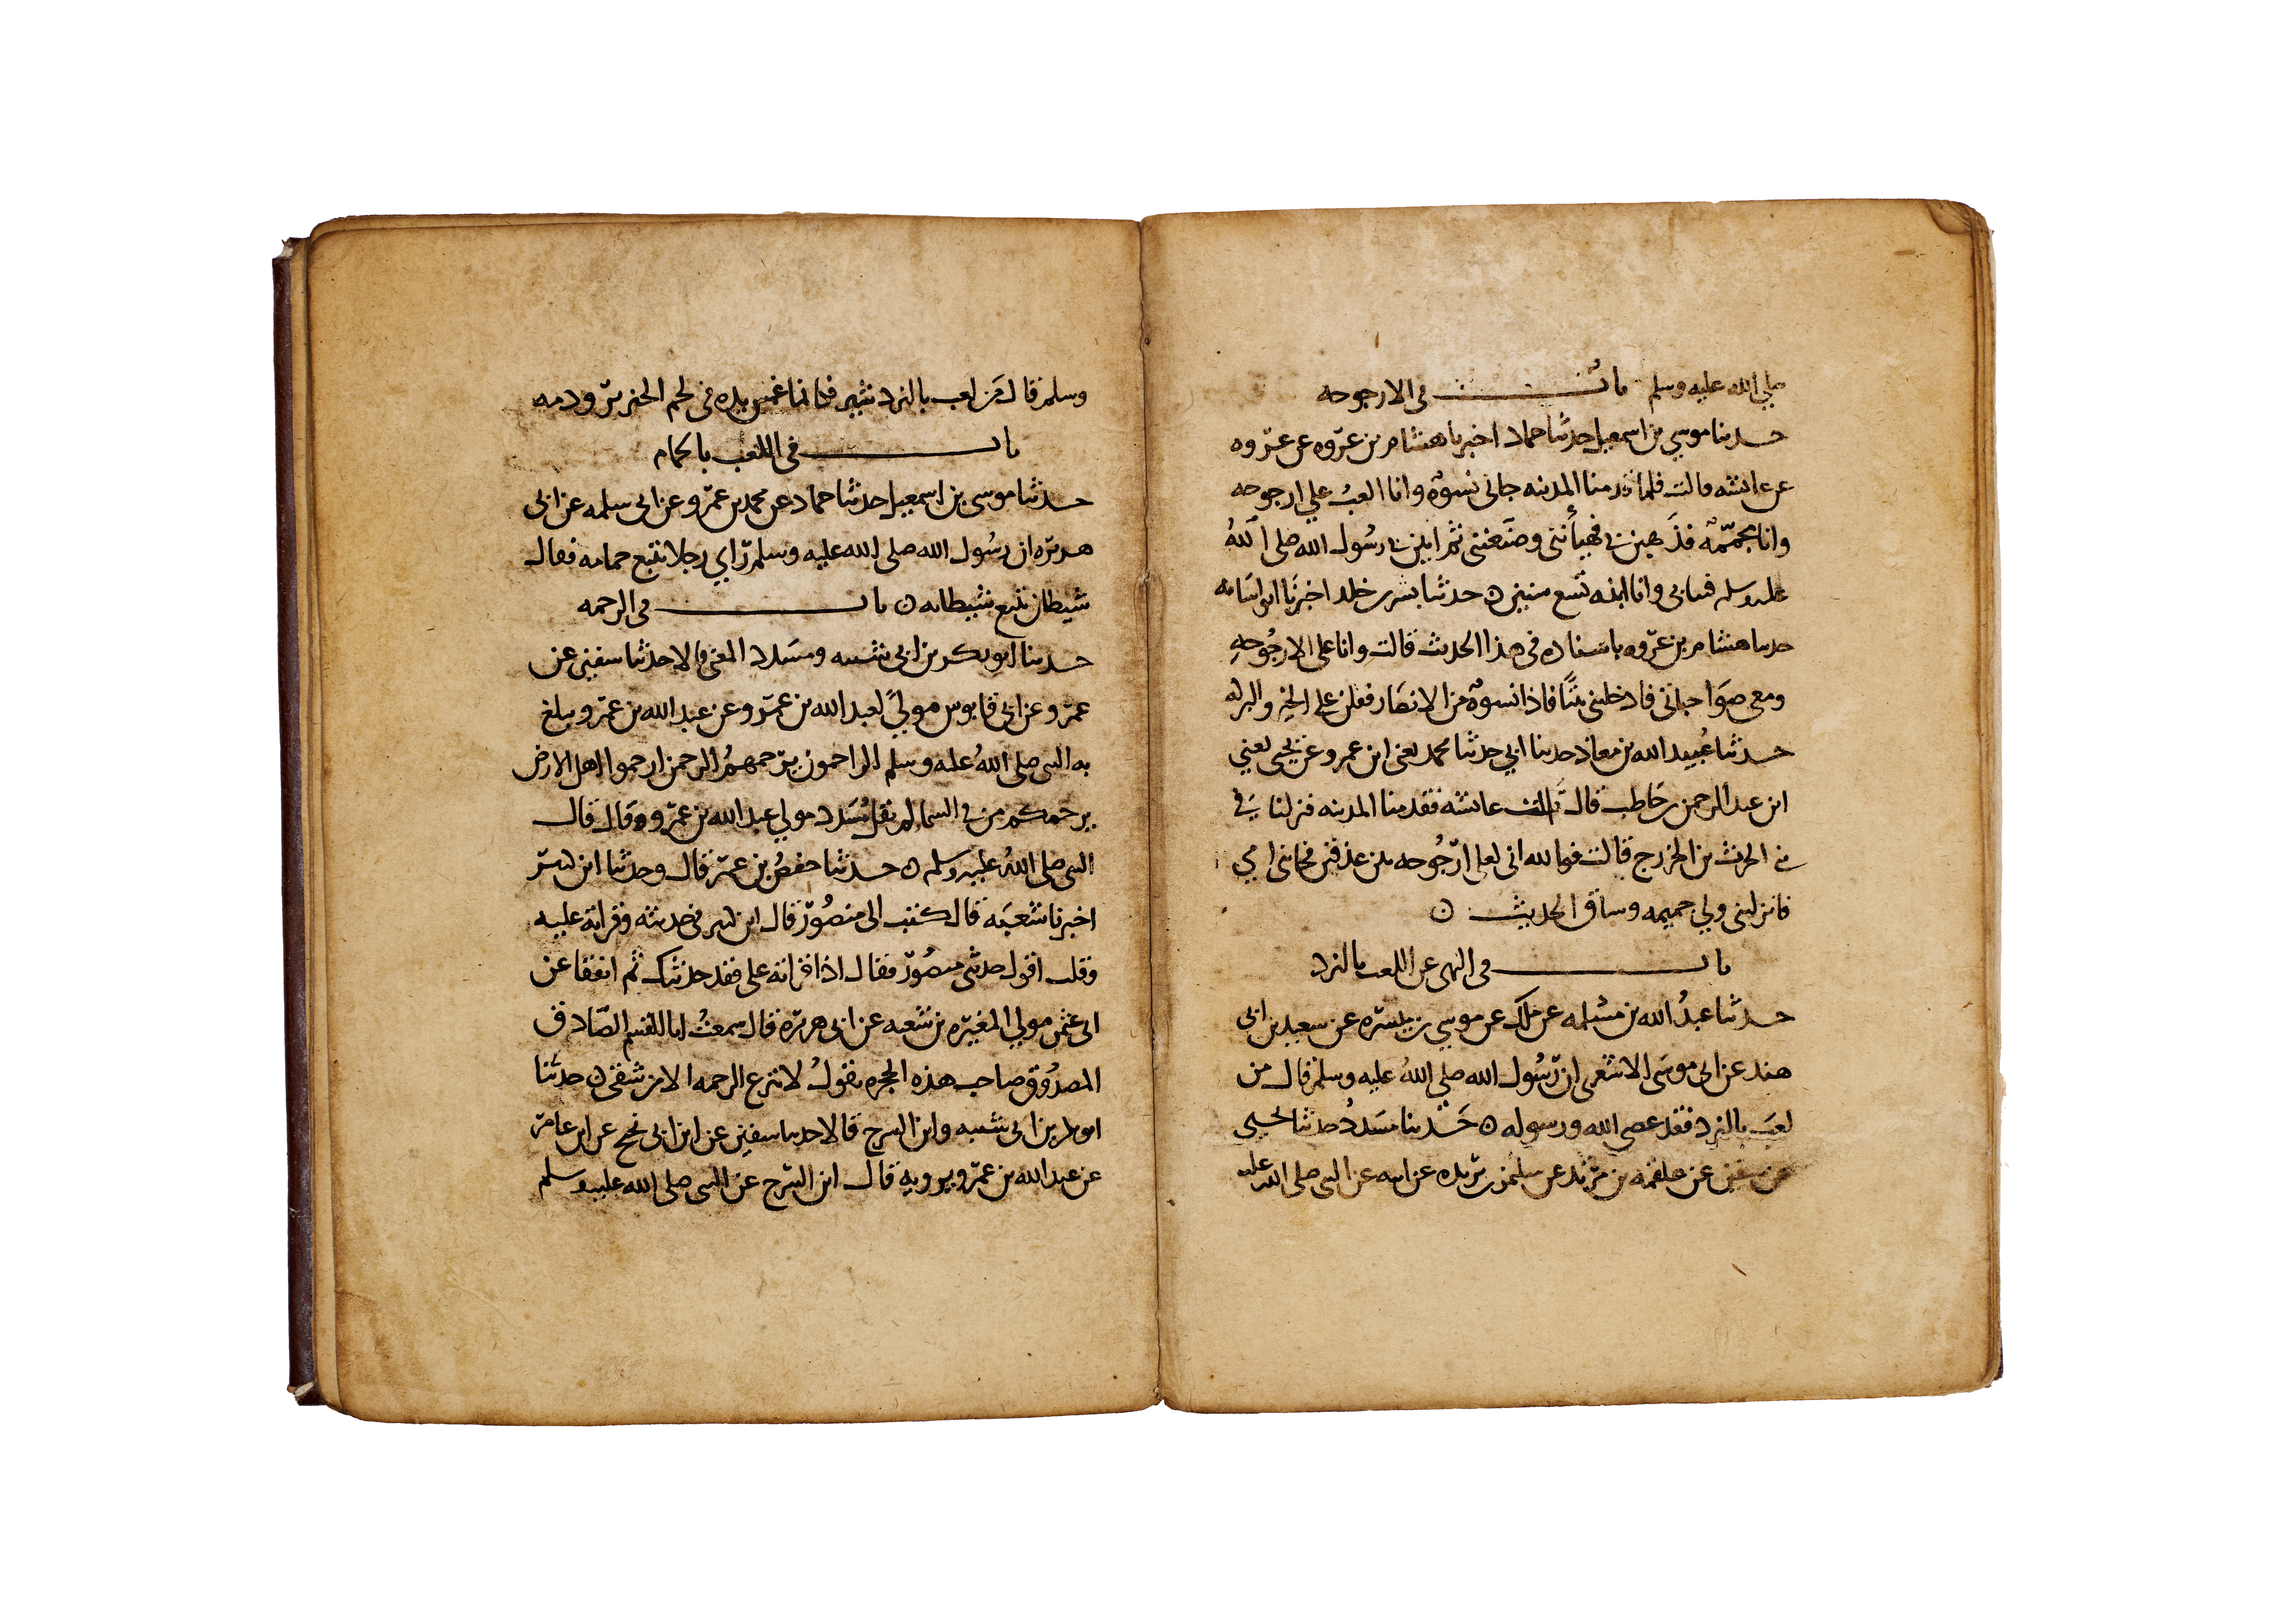 صلي الله عليه وسلم باب في الارجوحه
حدثنا موسي بن اسمعيل حدثنا حماد اخبرنا هشام بن عروه عن عروه
عن عائشه قالت فلما قدمنا المدينه جاني نسوة وانا العب علي ارجوحه
وانا مجممة فذهبن بي فهيأنني وصنعنني ثم اتين بي رسول الله صلي الله
عليه وسلم فبنا بي وانا ابنه تسع سنين ه حدثنا بشر بن خلد اخبرنا ابو اسامه
حدثنا هشام بن عروه باسناده في هذا الحديث قالت وانا على الارجوحه
ومعي صواحباتي فادخلنني بيتا فاذا نسوة من الانصار فقلن على الخير والبركه
حدثنا عبيد الله بن معاذ حدثنا ابي حدثنا محمد يعني ابن عمرو عن يحيى يعني
ابن عبد الرحمن بن حاطب قال قالت عائشه فقدمنا المدينه فنزلنا في
بني الحرث بن الخزرج قالت فوالله اني لعلى ارجوحه بين عذقين فجاتني امي
فانزلتني ولي جميمه وساق الحديث ه
باب في النهي عن اللعب بالنرد
حدثنا عبد الله بن مسلمه عن ملك عن موسي بن ميسره عن سعيد بن ابي
هند عن ابي موسى الاشعري ان رسول الله صلي الله عليه وسلم قال من
لعب بالنرد فقد عصى الله ورسوله ه حدثنا مسدد حدثنا يحيى
عن سفين عن علقمه بن مرثد عن سليمن بن بريده عن ابيه عن النبي صلى الله عليه
وسلم قال من لعب بالنردشير فكانما غمس يده في لحم الخنزير ودمه
باب في اللعب بالحمام
حدثنا موسى بن اسمعيل حدثنا حماد عن محمد بن عمرو عن ابي سلمه عن ابي
هريره ان رسول الله صلى الله عليه وسلم راي رجلا يتبع حمامه فقال
شيطان يتبع شيطانه ه باب في الرحمه
حدثنا ابو بكر بن ابي شيبه ومسدد المعنى قالا حدثنا سفين عن
عمرو عن ابي قابوس مولي لعبد الله بن عمرو عن عبد الله بن عمرو يبلغ
به النبي صلى الله عليه وسلم الراحمون يرحمهم الرحمن ارحموا اهل الارض
يرحمكم من في السما لم يقل مسدد مولي عبد الله بن عمرو وقال قال
النبي صلى الله عليه وسلم ه حدثنا حفص بن عمر قال وحدثنا ابن كثير
اخبرنا شعبه قال كتب الي منصور قال ابن كثير في حديثه وقراته عليه
وقلت اقول حدثني منصور فقال اذا قراته على فقد حدثتك ثم اتفقا عن
ابي عثمن مولي المغيره بن شعبه عن ابي هريره قال سمعت ابا القسم الصادق
المصدوق صاحب هذه الحجره يقول لا تنزع الرحمه الا من شقي ه حدثنا
ابو بكر بن ابي شيبه وابن السرح قالا حدثنا سفين عن ابن ابي نجيح عن ابن عامر
عن عبد الله بن عمرو يرويه قال ابن السرح عن النبي صلى الله عليه وسلم